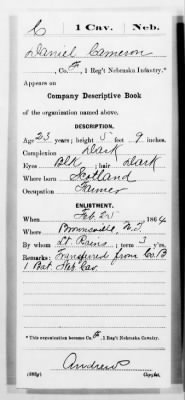 C | 1 Cav. | Neb.
Daniel Cameron
Co. , 1 Reg't Nebraska Infantry.*
Appears on
Company Descriptive Book
of the organization named above.
DESCRIPTION.
Age 23 years; height 5 feet 9 inches.
Complexion Dark
Eyes Blk ; hair Dark
Where born Scotland
Occupation Farmer
ENLISTMENT.
When Feb 25 , 1864
Where Brownville, N.T.
By whom Lt Rains ; term 3 y'rs.
Remarks: Transferred from Co. B
1 Bat. Neb Cav.
*This organization became Co. , 1 Reg't Nebraska Cavalry.
Andrews
Copyist.